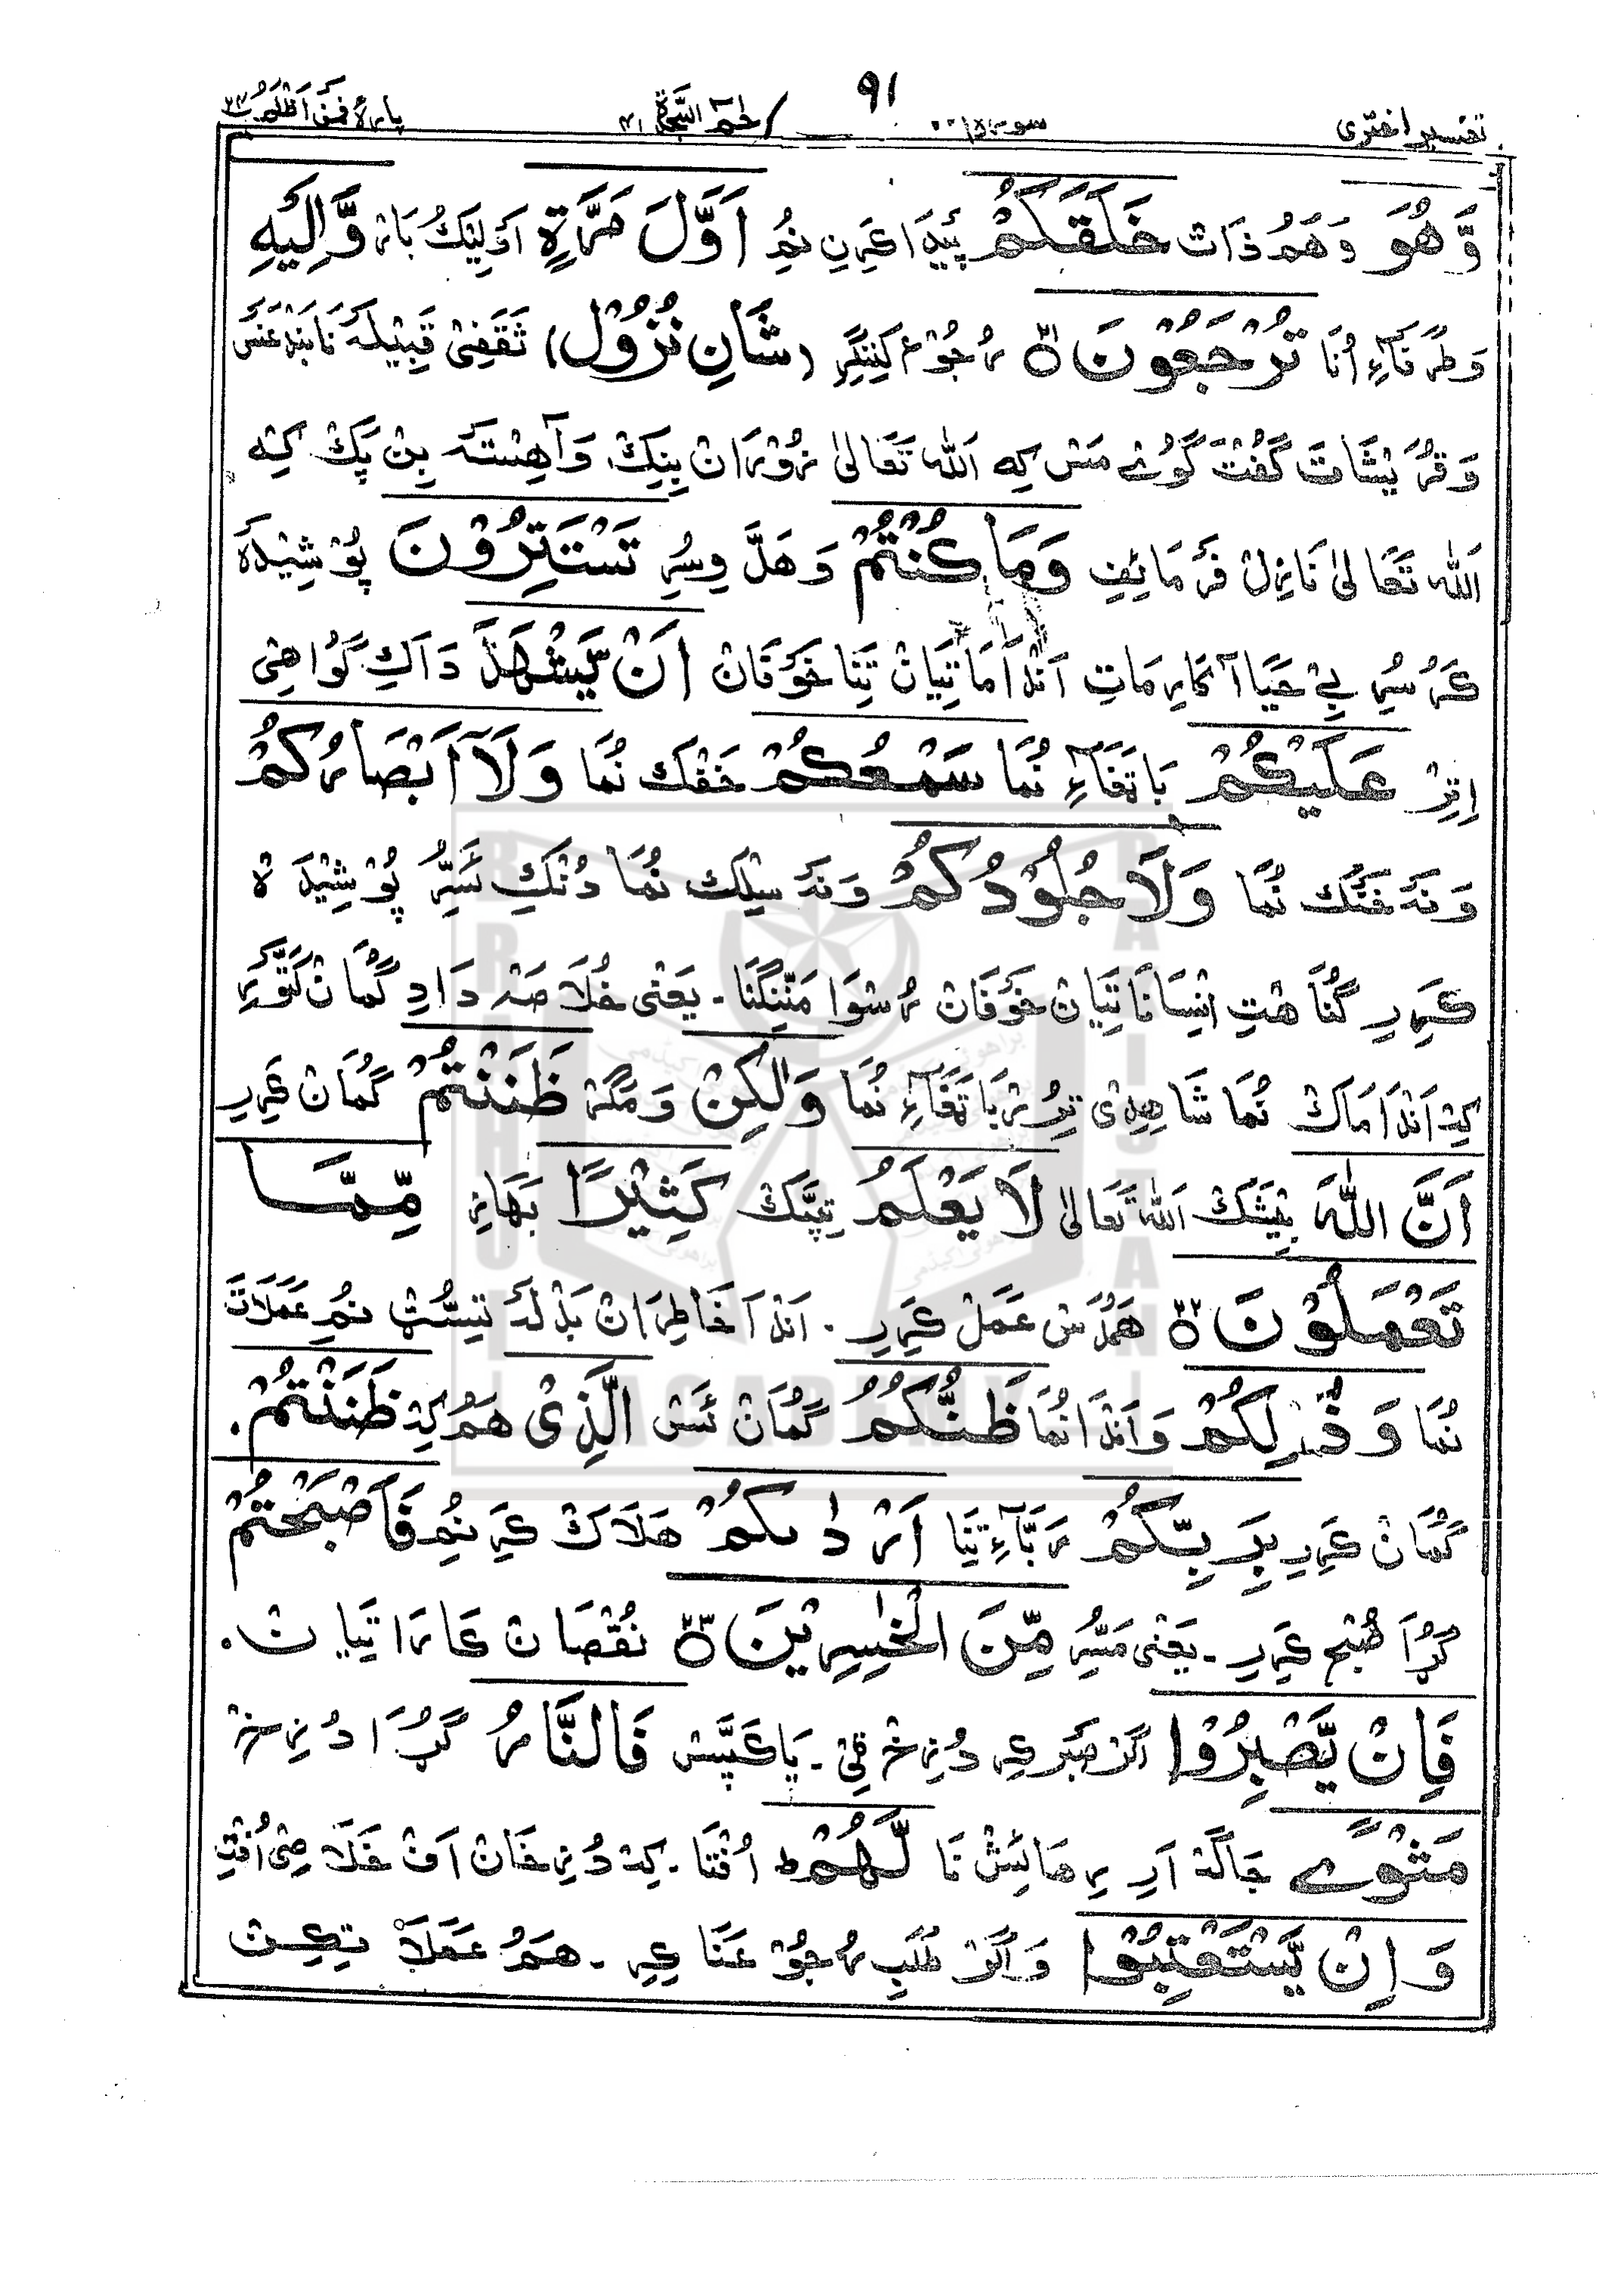 تفسیر اختری سورۃ حٰمٓ السَّجْدَۃ ۴۱ ۹۱ پارۂ فَمَنْ اَظْلَمُ ۲۴
وَّ هُوَ وَ هَمُ ذَات خَلَقَكُمْ پَیْدَا كَرِنِ نُمِ اَوَّلَ مَرَّةٍ اَوَلِیْكُ بَار وَّ اِلَیْهِ
وَ طَرَفَآءِ اُنَا تُرْجَعُوْنَ ۝۲۱ رُجُوْع كَنِنگِرِ (شَانِ نُزُوْل) ثَقَفِیْ قَبِیْلَهٗ نَا بَنْدَغَس
وَ قُرَیْشَات گُفْت گُوئے مَس كِه اَللّٰه تَعَالیٰ زُوْرَان بِنِكْ، وَ آهِسْتَه بِنْ پَكْ كِه
اَللّٰه تَعَالیٰ نَازِل فَرْمَائِفِ وَمَا كُنْتُمْ وَ هَلَّ وِسُرِ تَسْتَتِرُوْنَ پُوْشِیْدَهٗ
كَرُسُرِ بِیْ حَیَا آ كَارِمَاتِ اَنْدَامَاتِیَان تِنَا خَوْفَان اَنْ یَّشْهَدَ دَاكِ گَوَاهِی
اِتِرْ عَلَیْكُمْ بَاتَغَآءِ نُمَا سَمْعُكُمْ خَفْك نُمَا وَ لَاۤ اَبْصَارُكُمْ
وَ نَهٗ خَنْك نُمَا وَ لَا جُلُوْدُكُمْ وَ نَهٗ سِلْك نُمَا دُنْكِ ئَسُّرِ پُوْشِیْدَه
كَرِرِ گُنَاهْتِ اِنْسَانَاتِیَان خَوْفَان رُسْوَا مَنِّنگنَا۔ یَعْنِی خُلَاصَه دَادِ گُمَان كَتَّوْرِ
كِه اَنْدَامَاك نُمَا شَاهِدِی تِرُر بَاتَغَآءِ نُمَا وَ لٰكِنْ وَ مَگَر ظَنَنْتُمْ گُمَان كَرِرِ
اَنَّ اللّٰهَ بِیْشَك اَللّٰه تَعَالیٰ لَا یَعْلَمُ تِپَّك كَثِیْرًا بَهَاز مِّمَّا
تَعْمَلُوْنَ ۝۲۲ هَمْدَس عَمَل كَرِرِ۔ اَنْدَاخَاطِرَان بَدْلَه تِسُّس نُمِ عَمَلَات
نُمَا وَ ذٰلِكُمْ وَ اَنْدَا نُمَا ظَنُّكُمُ گُمَان ئَس الَّذِیْ هَمُ كِه ظَنَنْتُمْ۔
گُمَان كَرِرِ بِرَبِّكُمْ رَبَّآءِ تِنَا اَرْدٰىكُمْ هَلَاك كَرِ نُمِ فَاَصْبَحْتُمْ
گُڑَا صُبْح كَرِرِ۔ یَعْنِی مَسُّرِ مِّنَ الْخٰسِرِیْنَ ۝۲۳ نُقْصَان كَارَاتِیَان۔
فَاِنْ یَّصْبِرُوْا اَگَر صَبَر كِرِ دُزَخ ٹِی۔ یَا كَپَّس فَالنَّارُ گُڑَا دُزَخ
مَثْوًى جَاگَه اَرِ رِهَائِش نَا لَّهُمْ ط اُفْتَا۔ كِه دُزِخَان اَف خَلَاصِی اُفْتِ
وَ اِنْ یَّسْتَعْتِبُوْا وَ اَگَر طَلَبِ رُجُوْعَنَا كِرِ۔ هَمُ عَمَلَا تِكِن